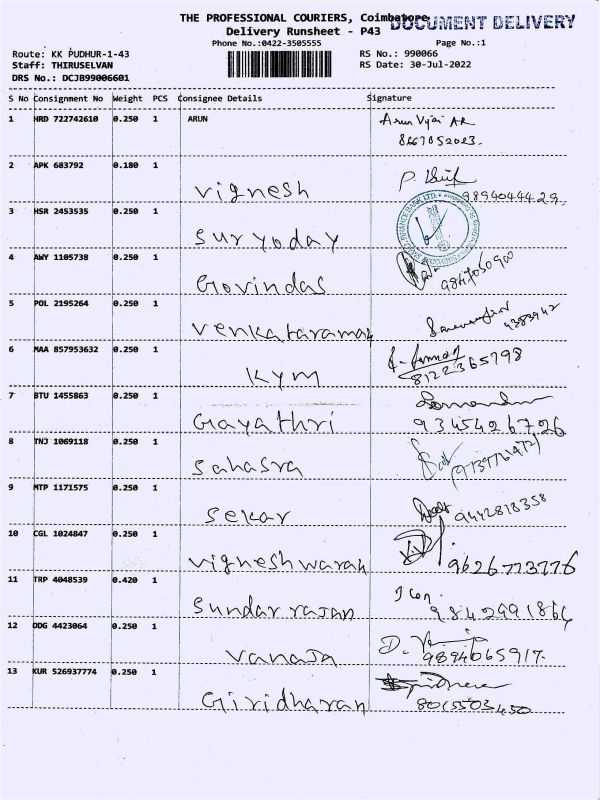 THE PROFESSIONAL COURIERS, Coimbatore
DOCUMENT DELIVERY
Delivery Runsheet - P43
Phone No.:0422-3505555
Page No.:1
Route: KK PUDHUR-1-43
RS No.: 990066
Staff: THIRUSELVAN
RS Date: 30-Jul-2022
DRS No.: DCJB99006601
S No Consignment No Weight PCS Consignee Details Signature
1 HRD 722742610 0.250 1 ARUN Arun Vijai AR
8667052023.
2 APK 683792 0.180 1
Vignesh 9894044429.
3 HSR 2453535 0.250 1
Suryoday
4 AWY 1105738 0.250 1
Govindas
5 POL 2195264 0.250 1
Venkataraman 4383942
6 MAA 857953632 0.250 1
KYM 8122365798
7 BTU 1455863 0.250 1
Gayathri 9345426726
8 TNJ 1069118 0.250 1
Sahasra
9 MTP 1171575 0.250 1
Sekar 9442818358
10 CGL 1024847 0.250 1
Vigneshwaran 9626773776
11 TRP 4048539 0.420 1
Sundarrajan 9842991864
12 DDG 4423064 0.250 1
Vanaja 9894065917.
13 KUR 526937774 0.250 1
Giridharan 8015503450